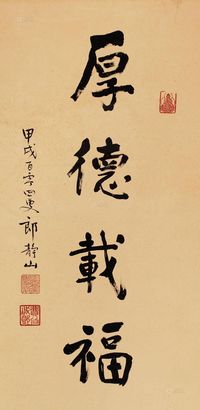 厚德載福
甲戌百零四叟郎靜山